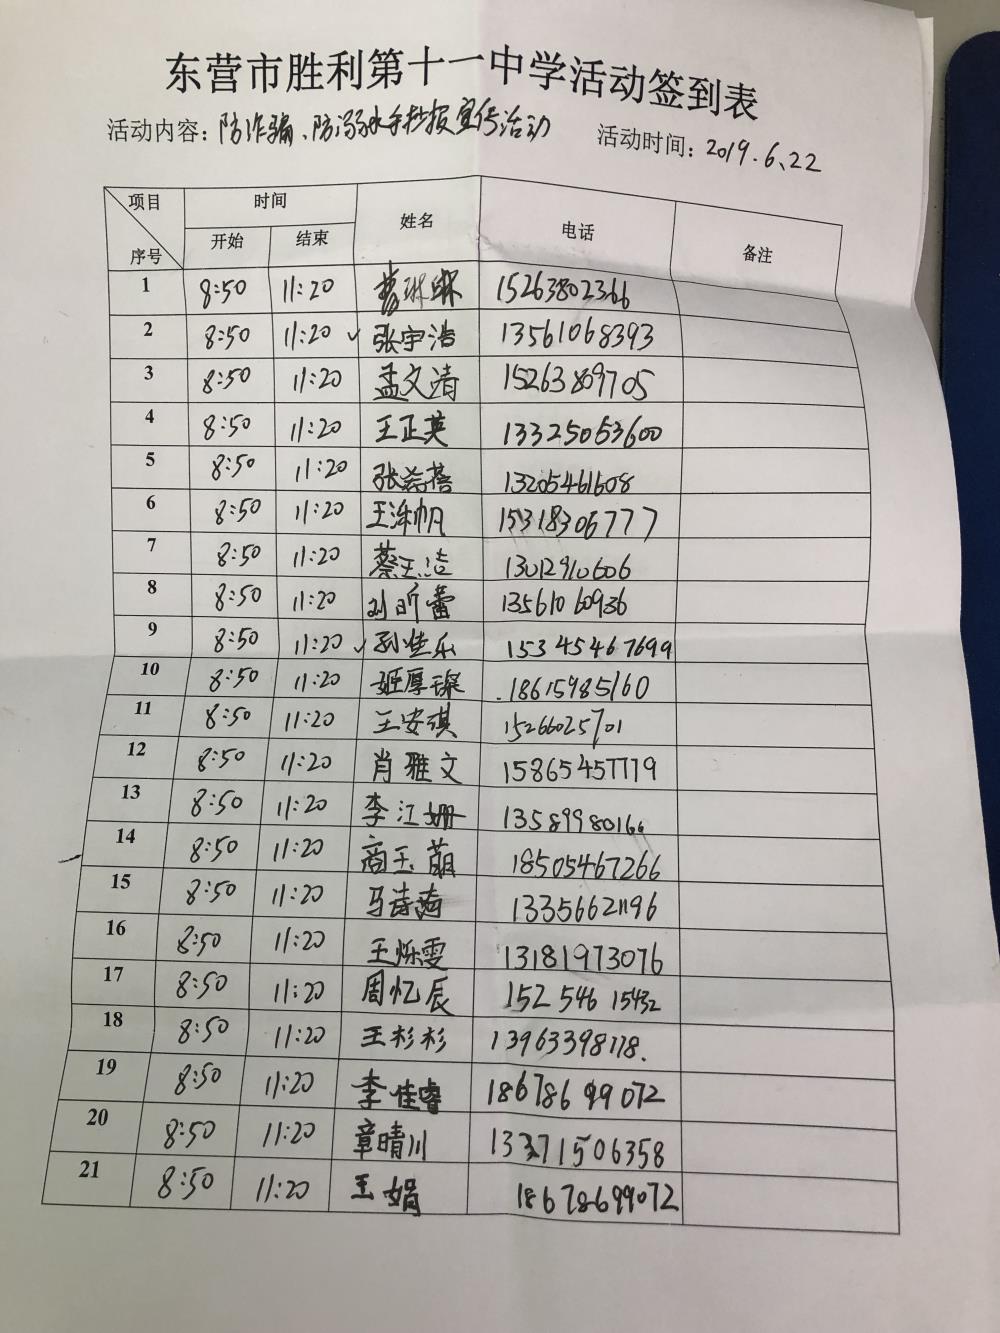 东营市胜利第十一中学活动签到表
活动内容：防诈骗、防溺水手抄报宣传活动 活动时间：2019.6.22
项目 时间 姓名 电话 备注
序号 开始 结束
1 8:50 11:20 曹琳琳 15263802366
2 8:50 11:20 ✓ 张宇浩 13561068393
3 8:50 11:20 孟文清 15263809705
4 8:50 11:20 王正英 13325053600
5 8:50 11:20 13205461608
6 8:50 11:20 15318306777
7 8:50 11:20 蔡玉洁 13012910606
8 8:50 11:20 刘昕蕾 13561060936
9 8:50 11:20 ✓ 孙佳乐 15345467699
10 8:50 11:20 姬厚琛 18615985160
11 8:50 11:20 王安琪 15266025701
12 8:50 11:20 肖雅文 15865457779
13 8:50 11:20 李江姗 13589980166
14 8:50 11:20 商玉萌 18505467266
15 8:50 11:20 13356621196
16 8:50 11:20 王烁雯 13181973076
17 8:50 11:20 周忆辰 152 546 15432
18 8:50 11:20 王杉杉 13963398118.
19 8:50 11:20 李佳睿 18678699072
20 8:50 11:20 章晴川 13371506358
21 8:50 11:20 王娟 18678699072